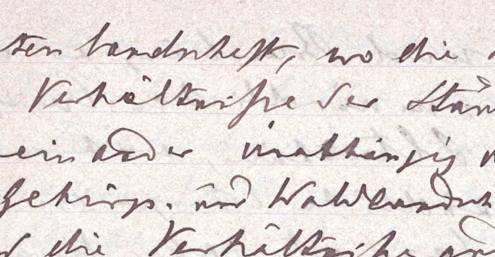 ten Landschaft, wo die
Verhältnisse der Stän
einander unabhängig
Gebirgs- und Waldlandsch
die Verhältnisse